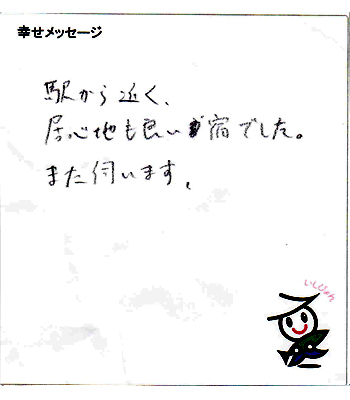 幸せメッセージ
駅から近く、
居心地も良い宿でした。
また伺います、
いしぴょん